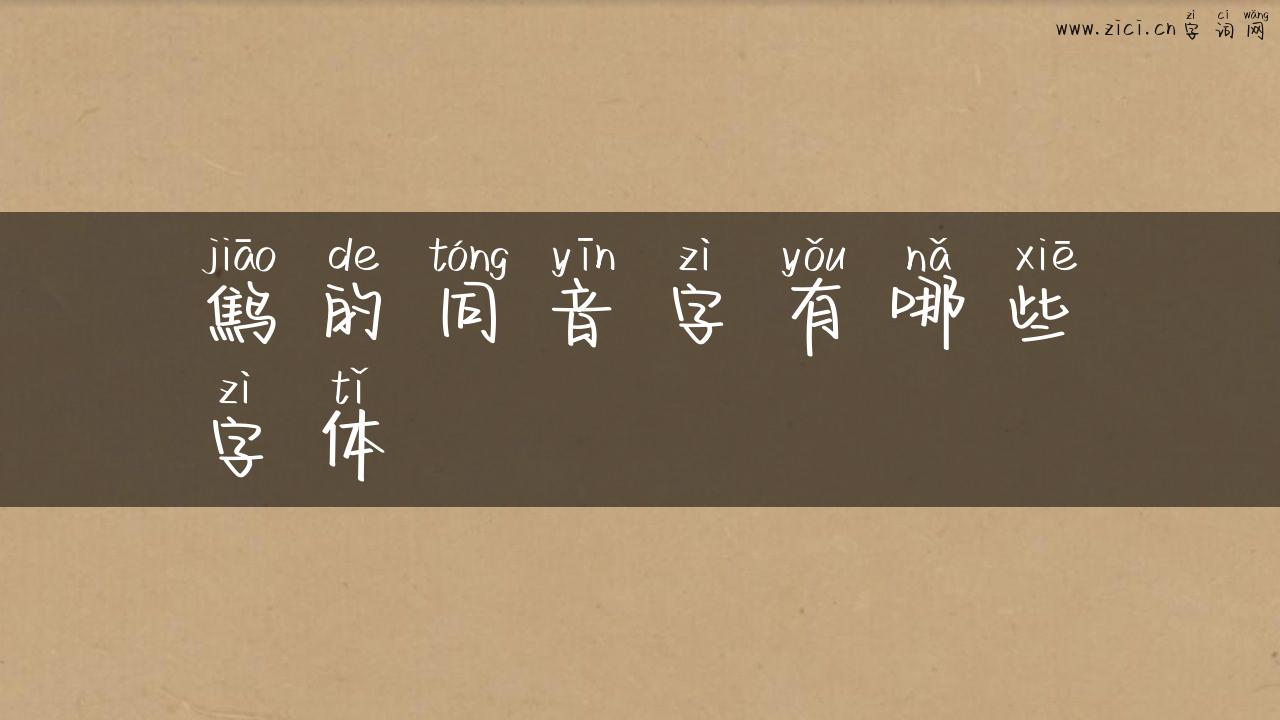 zì cí wǎng
www.zici.cn 字 词 网
jiāo de tóng yīn zì yǒu nǎ xiē
鹪 的 同 音 字 有 哪 些
zì tǐ
字 体